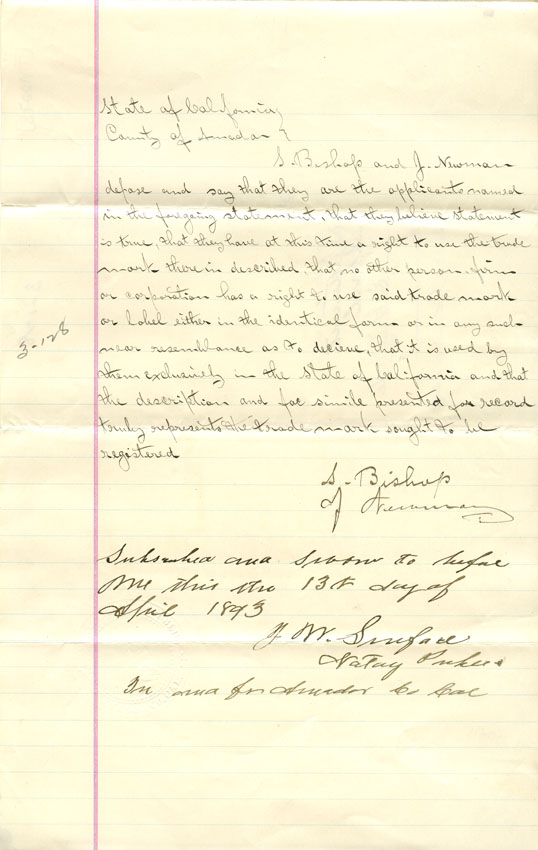 State of California
County of Amador
S. Bishop and J. Newman
depose and say that they are the applicants named
in the foregoing statement, that they believe statement
is true, that they have at this time a right to use the trade
mark there in described, that no other person, firm
or corporation has a right to use said trade mark
or label either in the identical form or in any such
near resemblance as to decieve, that it is used by
them exclusively in the State of California and that
the description and fac simile presented for record
truly represents the trade mark sought to be
registered
3-128
S. Bishop
J Newman
Subscribed and sworn to before
me this the 13th day of
April 1893
J W. Surface
Notary Public
In and for Amador Co Cal